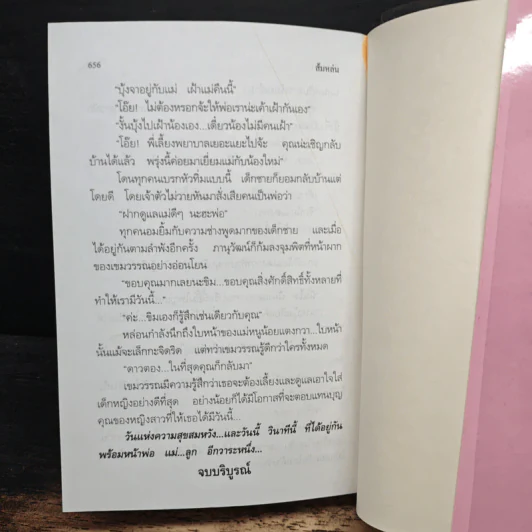 656
ส้มหล่น
“บุ้งจาอยู่กับแม่ เฝ้าแม่คืนนี้”
“โอ๊ย! ไม่ต้องหรอกจ้ะให้พ่อเราน่ะเค้าเฝ้ากันเอง”
“งั้นบุ้งไปเฝ้าน้องเอง...เดี๋ยวน้องไม่มีคนเฝ้า”
“โอ๊ย! พี่เลี้ยงพยาบาลเยอะแยะไปจ้ะ คุณน่ะเชิญกลับ
บ้านได้แล้ว พรุ่งนี้ค่อยมาเยี่ยมแม่กับน้องใหม่”
โดนทุกคนเบรกหัวทิ่มแบบนี้ เด็กชายก็ยอมกลับบ้านแต่
โดยดี โดยเจ้าตัวไม่วายหันมาสั่งเสียคนเป็นพ่อว่า
“ฝากดูแลแม่ดีๆ นะฮะพ่อ”
ทุกคนอมยิ้มกับความช่างพูดมากของเด็กชาย และเมื่อ
ได้อยู่กันตามลำพังอีกครั้ง ภานุวัฒน์ก็ก้มลงจุมพิตที่หน้าผาก
ของเขมวรรณอย่างอ่อนโยน
“ขอบคุณมากเลยนะขิม...ขอบคุณสิ่งศักดิ์สิทธิ์ทั้งหลายที่
ทำให้เรามีวันนี้...”
“ค่ะ...ขิมเองก็รู้สึกเช่นเดียวกับคุณ”
หล่อนกำลังนึกถึงใบหน้าของแม่หนูน้อยแดงกวา...ใบหน้า
นั้นแม้จะเล็กกะจิดริด แต่ทว่าเขมวรรณรู้ดีกว่าใครทั้งหมด
“ดาวตอง...ในที่สุดคุณก็กลับมา”
เขมวรรณมีความรู้สึกว่าเธอจะต้องเลี้ยงและดูแลเอาใจใส่
เด็กหญิงอย่างดีที่สุด อย่างน้อยก็ได้มีโอกาสที่จะตอบแทนบุญ
คุณของหญิงสาวที่ให้เธอได้มีวันนี้...
วันแห่งความสุขสมหวัง...และวันนี้ วินาทีนี้ ที่ได้อยู่กัน
พร้อมหน้าพ่อ แม่...ลูก อีกวาระหนึ่ง...
จบบริบูรณ์